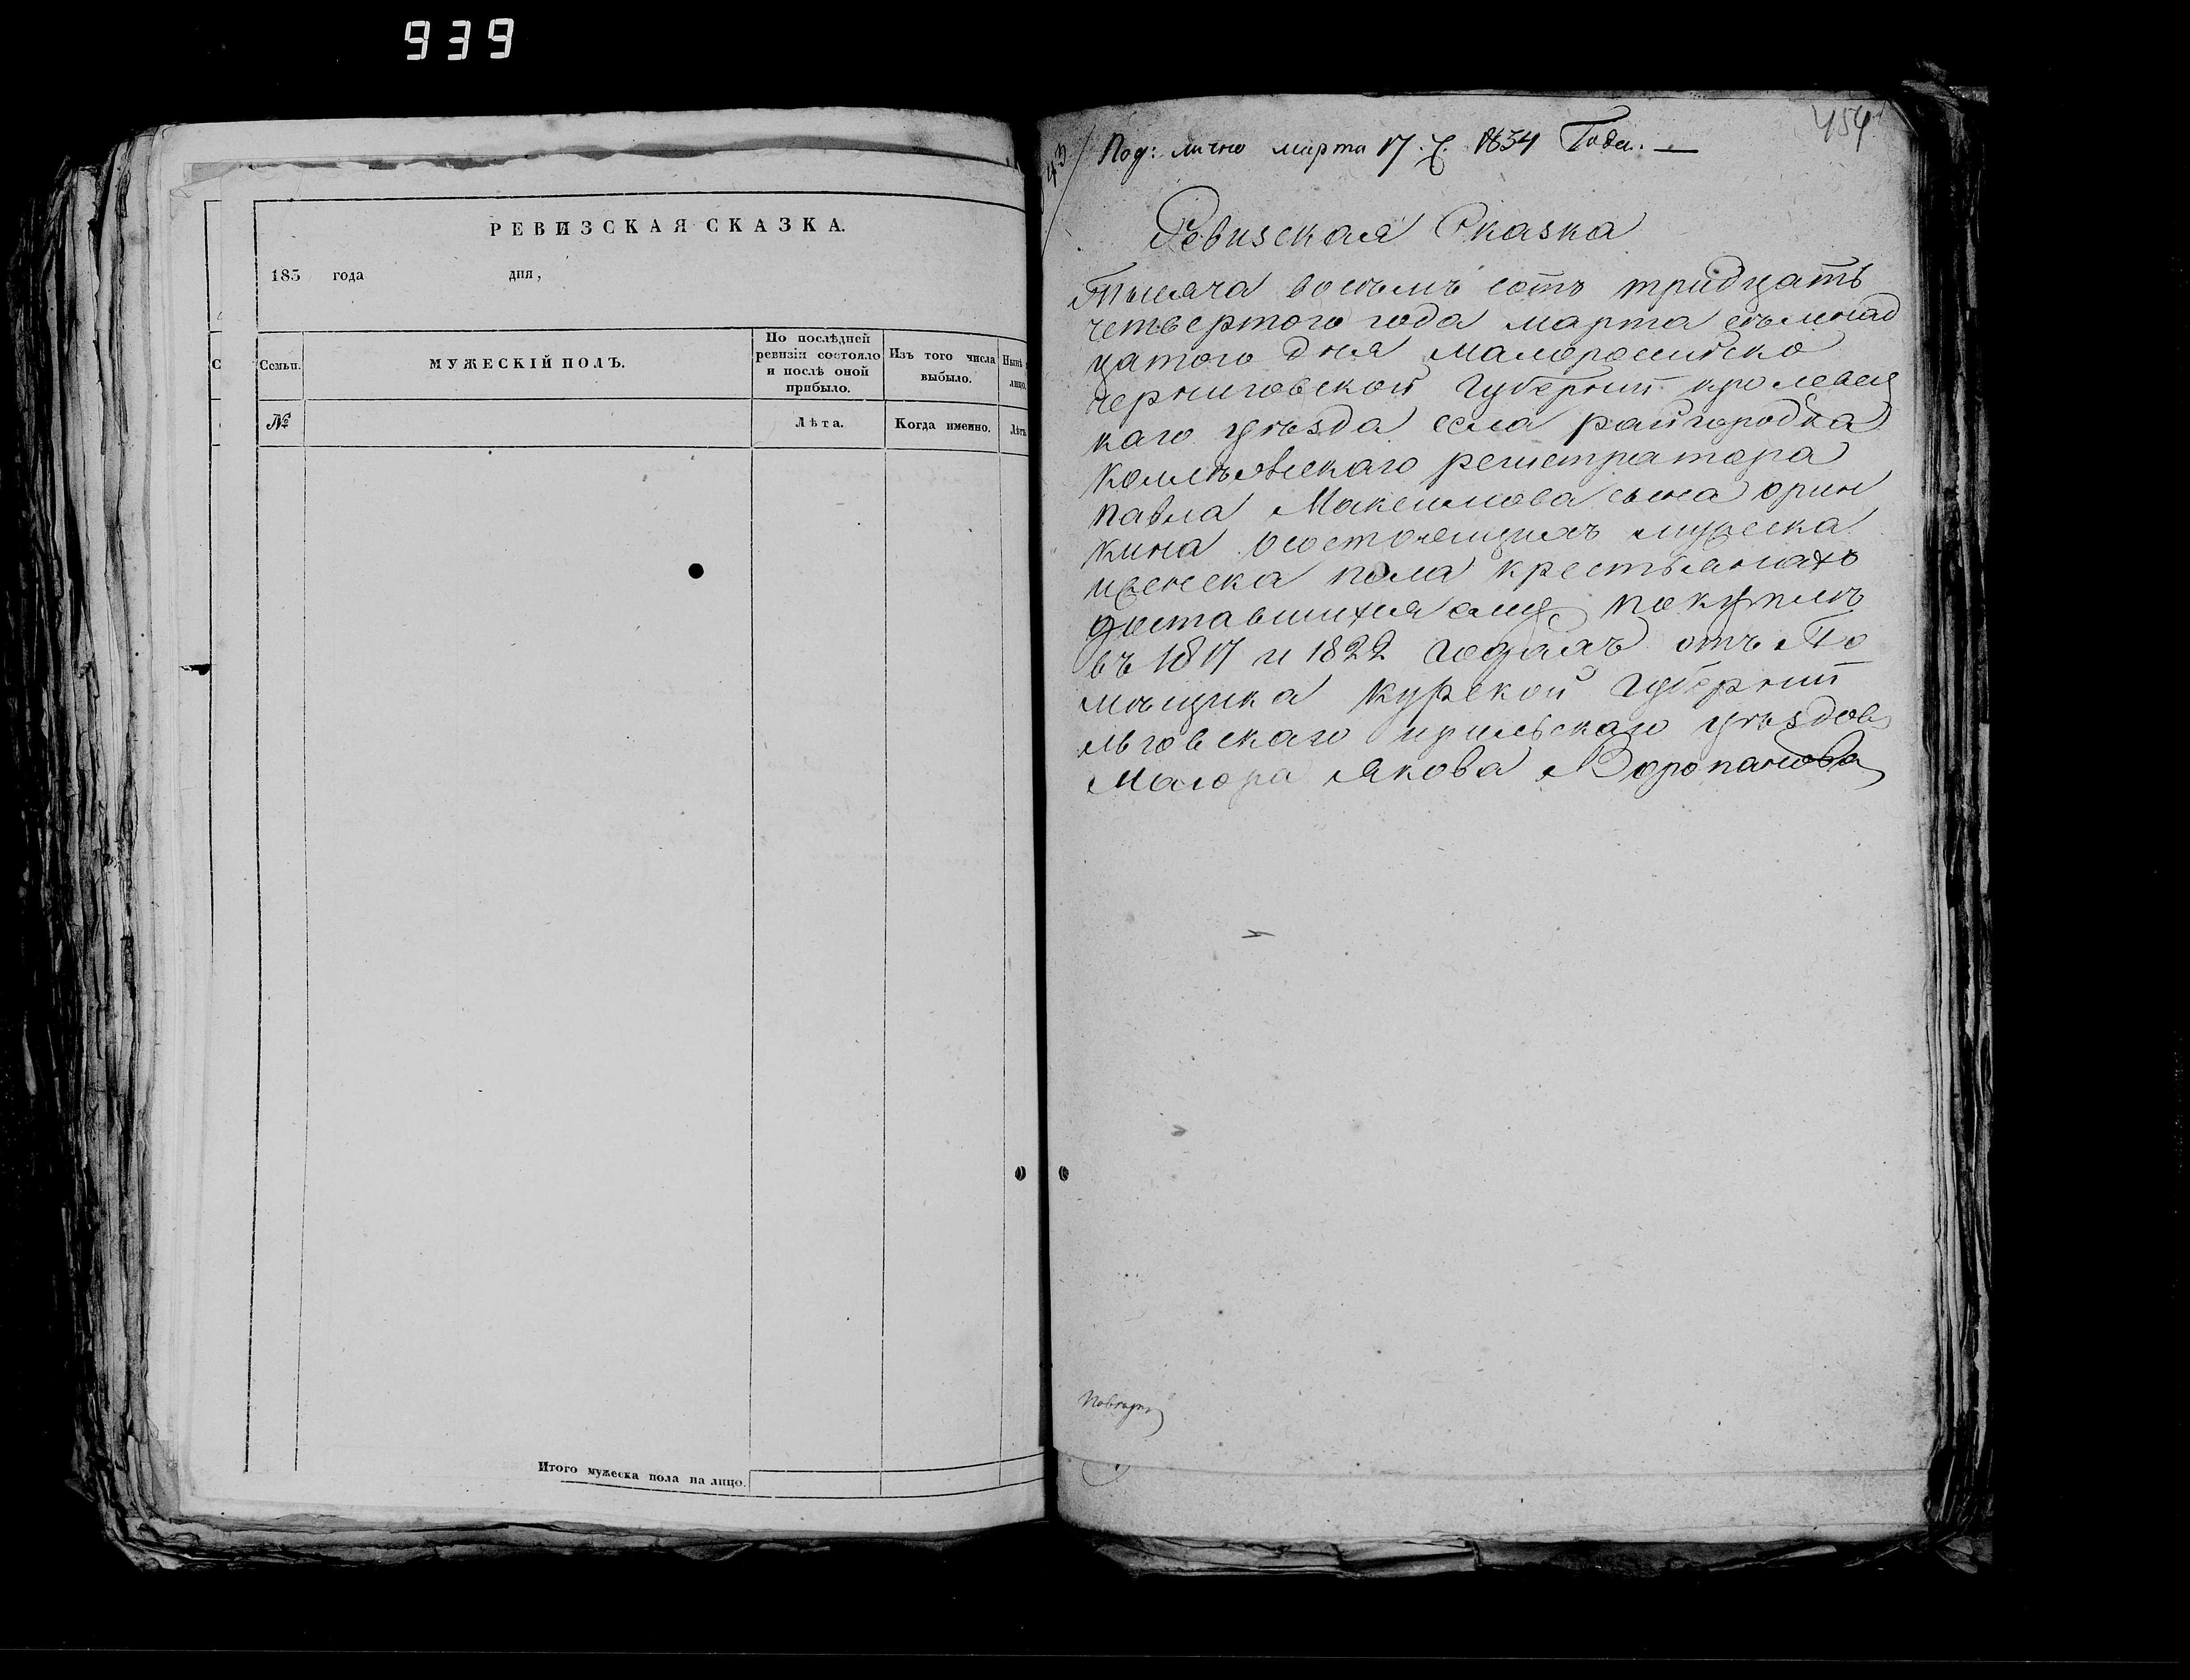 939
РЕВИЗСКАЯ СКАЗКА.
185 года дня,
Семьи. МУЖЕСКІЙ ПОЛЪ.
По послѣдней ревизіи состояло и послѣ оной прибыло.
Изъ того числа выбыло.
Нынѣ
лицо.
№ Лѣта. Когда именно. Лѣта
Итого мужеска пола на лицо.
454
43
Под: лично марта 17. ч. 1834 Года. —
Ревизская Сказка
Тысяча восѣмъ сотъ тридцать
четвертого года марта сѣмнад
цатого дня малоросийско
черниговской губерніи кролевец
каго уѣзда села райгородка
Колѣжскаго регистратора
павла Максимова сына орин
кина осостоящихъ мужеска
иженска пола крестьянахъ
доставшихся ему покупкѣ
въ 1817 и 1822 годахъ отъ По
мѣщика курской губерніи
льговскаго ирильскаго уѣздовъ
Маіора Якова Воропанова